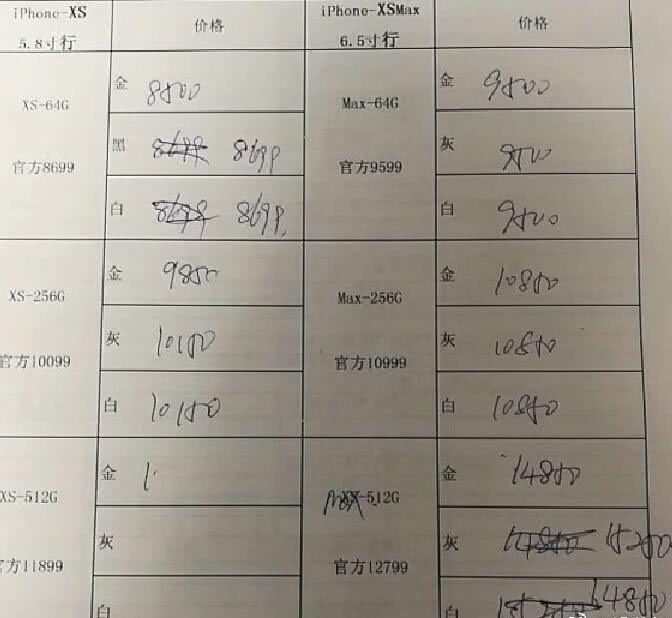 iPhone-XS 价格 iPhone-XSMax 价格
5.8寸行 6.5寸行
金 8500 金 9500
XS-64G Max-64G
黑 8699 灰 9500
官方8699 官方9599
白 8699 白 9500
金 9850 金 10850
XS-256G Max-256G
灰 10150 灰 10850
官方10099 官方10999
白 10150 白 10850
金 金 14850
XS-512G 512G
灰 灰 15250
官方11899 官方12799
白 白 14850